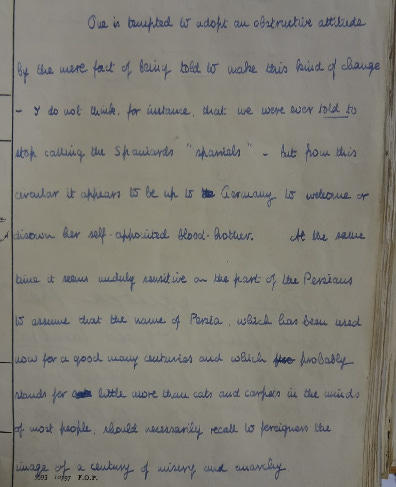 One is tempted to adopt an obstructive attitude
by the mere fact of being told to make this kind of change
- I do not think, for instance, that we were ever told to
stop calling the Spaniards "spaniels" - but from this
circular it appears to be up to Germany to welcome or
disown her self-appointed blood-brother. At the same
time it seems unduly sensitive on the part of the Persians
to assume that the name of Persia, which has been used
now for a good many centuries and which probably
stands for little more than cats and carpets in the minds
of most people, should necessarily recall to foreigners the
image of a century of misery and anarchy.
F.O.P.